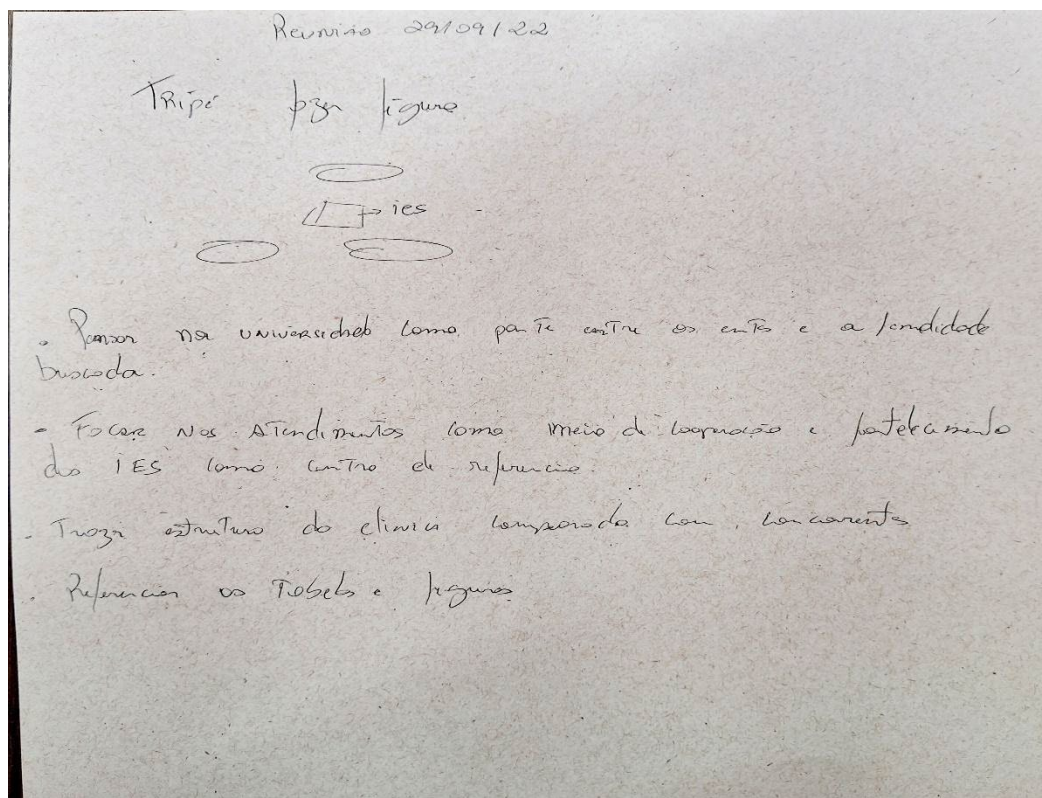 Reunião 29/09/22
Tripé fazer figura
ies
. Pensar na universidade como parte entre os entes e a
buscada.
- Focar nos Atendimentos como meio de cooperação e fortalecimento
da IES como centro de referencia.
- Trazer estrutura da clinica comparada com concorrente
. Referenciar as Tabelas e figuras